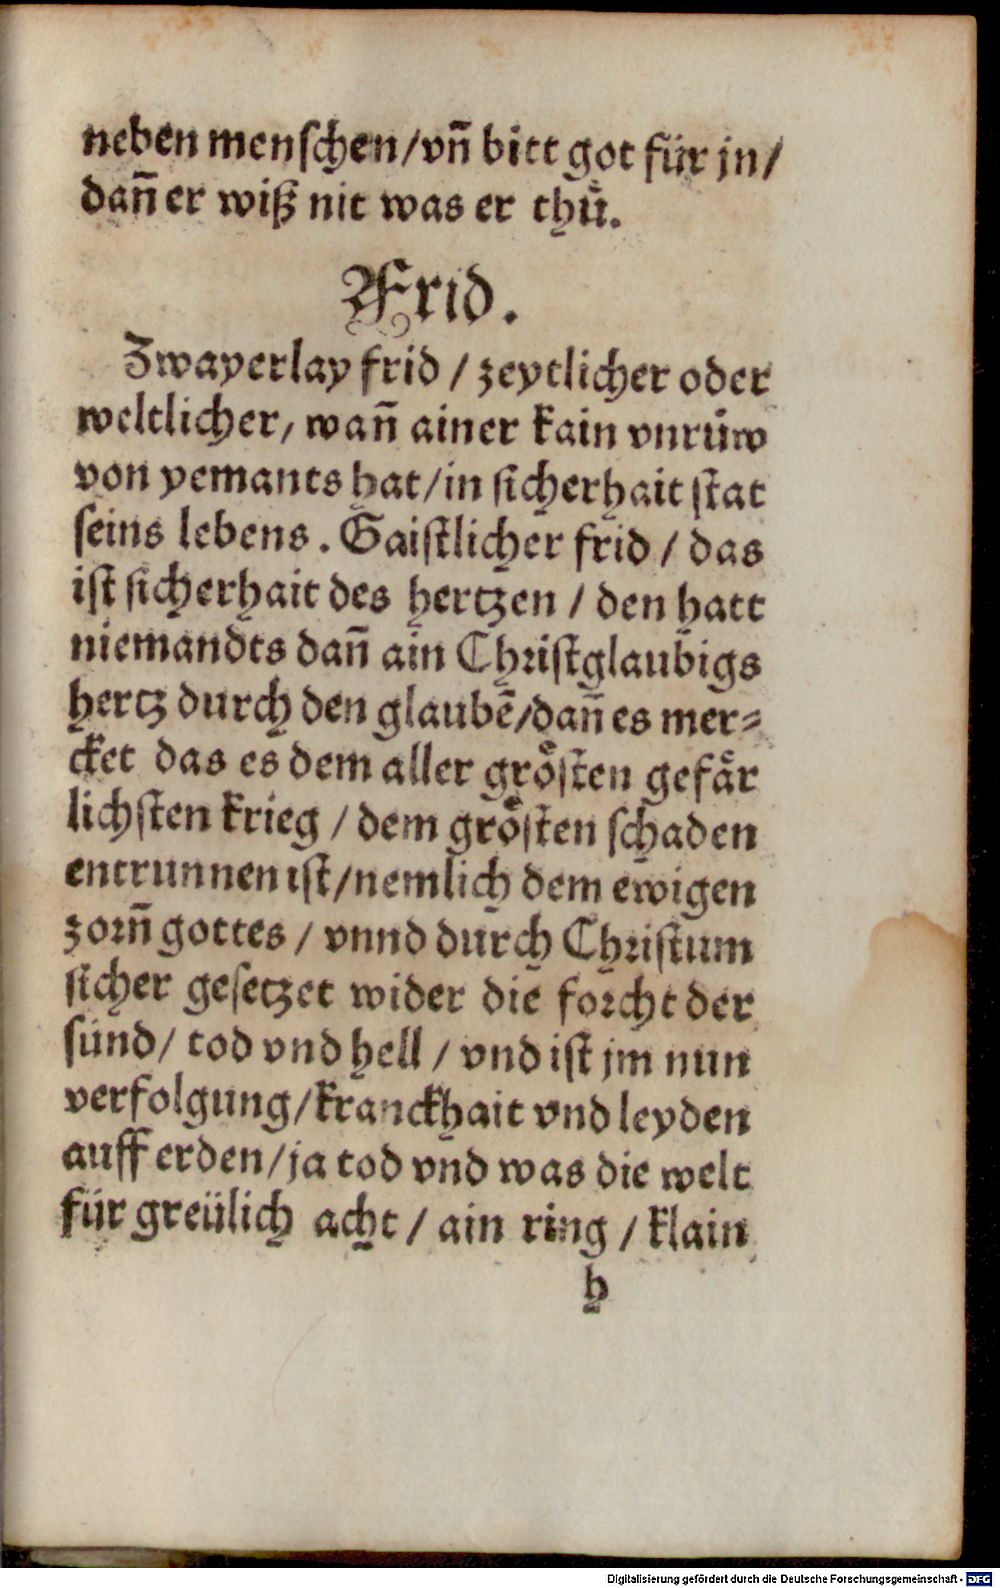 neben menschen/vñ bitt got für jn/
dañ er wiß nit was er thuͤ.
Frid.
Zwayerlay frid / zeytlicher oder
weltlicher, wañ ainer kain vnruͤw
von yemants hat/in sicherhait stat
seins lebens. Gaistlicher frid / das
ist sicherhait des hertzen / den hatt
niemandts dañ ain Christglaubigs
hertz durch den glaubē/dañ es mer⸗
cket das es dem aller groͤsten gefaͤr
lichsten krieg / dem groͤsten schaden
entrunnen ist/nemlich dem ewigen
zorñ gottes / vnnd durch Christum
sicher gesetzet wider die forcht der
sünd/ tod vnd hell / vnd ist jm nun
verfolgung/kranckhait vnd leyden
auff erden/ja tod vnd was die welt
für greülich acht / ain ring / klain
h
Digitalisierung gefördert durch die Deutsche Forschungsgemeinschaft - DFG